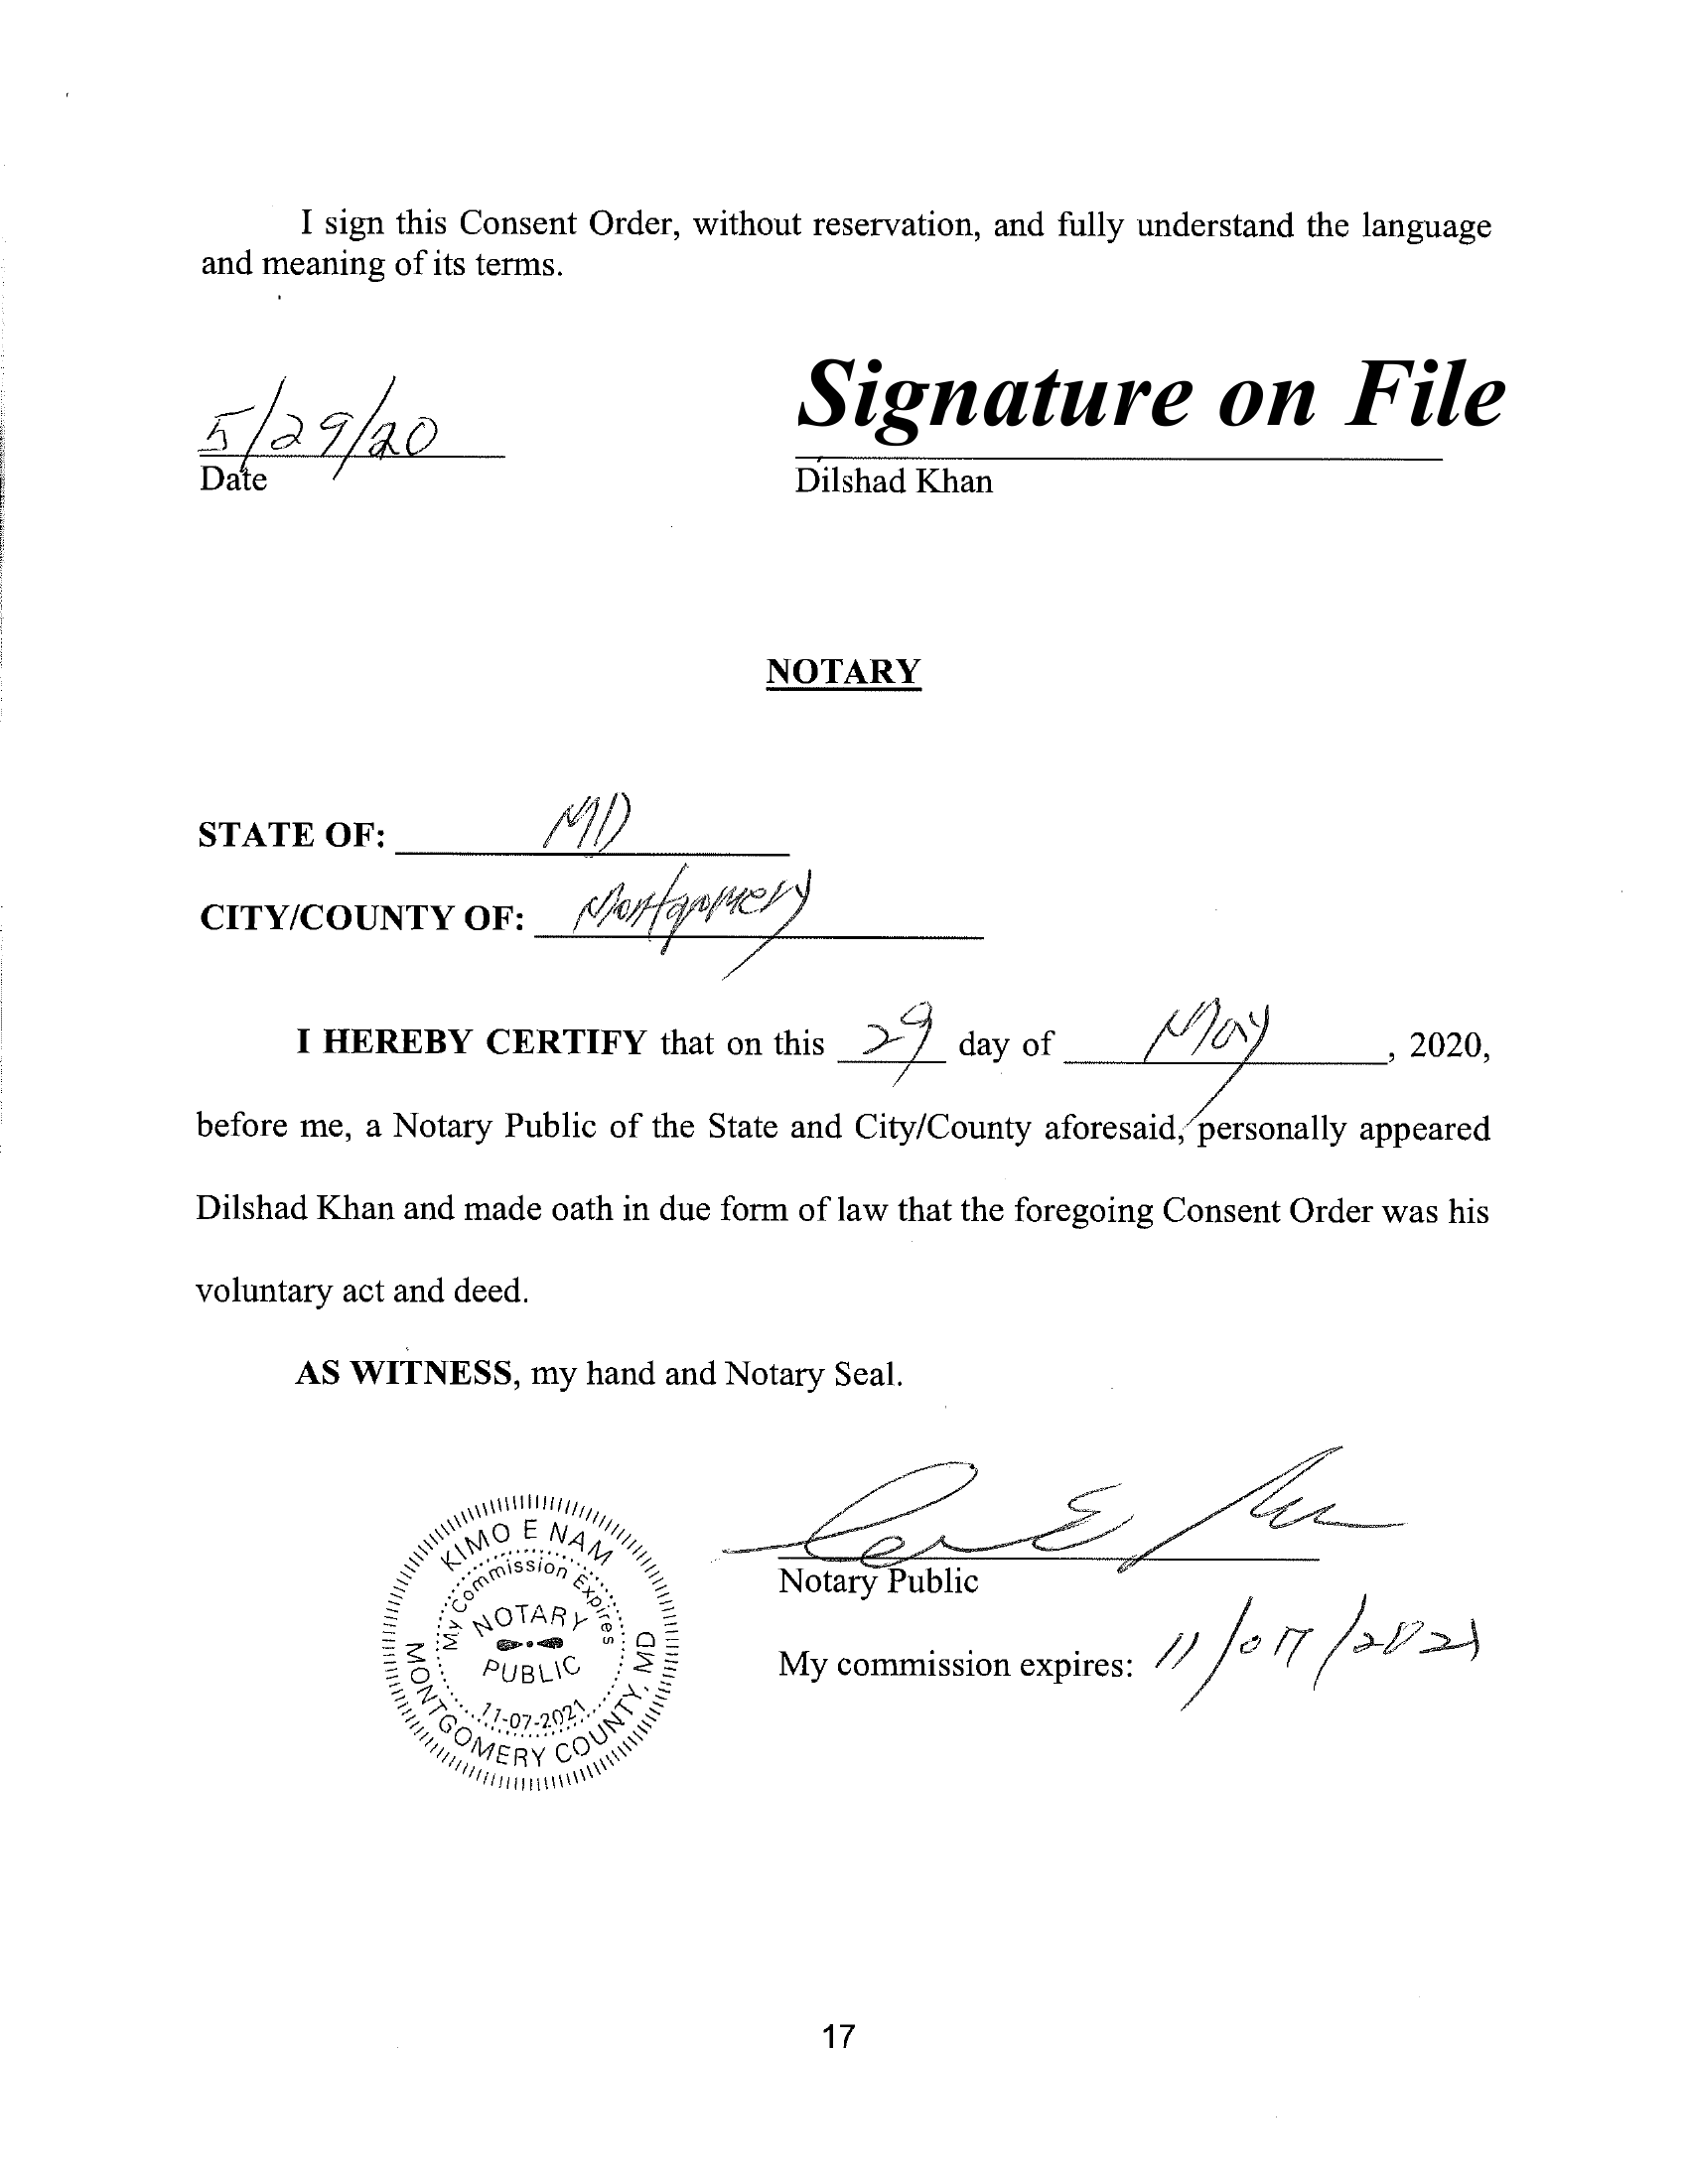 I sign this Consent Order, without reservation, and fully understand the language
and meaning of its terms.
5/29/20
Signature on File
Date
Dilshad Khan
NOTARY
STATE OF: MD
CITY/COUNTY OF: Montgomery
I HEREBY CERTIFY that on this 29 day of May, 2020,
before me, a Notary Public of the State and City/County aforesaid, personally appeared
Dilshad Khan and made oath in due form of law that the foregoing Consent Order was his
voluntary act and deed.
AS WITNESS, my hand and Notary Seal.
KIMO E NAM
My Commission Expires
NOTARY
PUBLIC
11-07-2021
MONTGOMERY COUNTY, MD
Notary Public
My commission expires: 11/07/2021
17